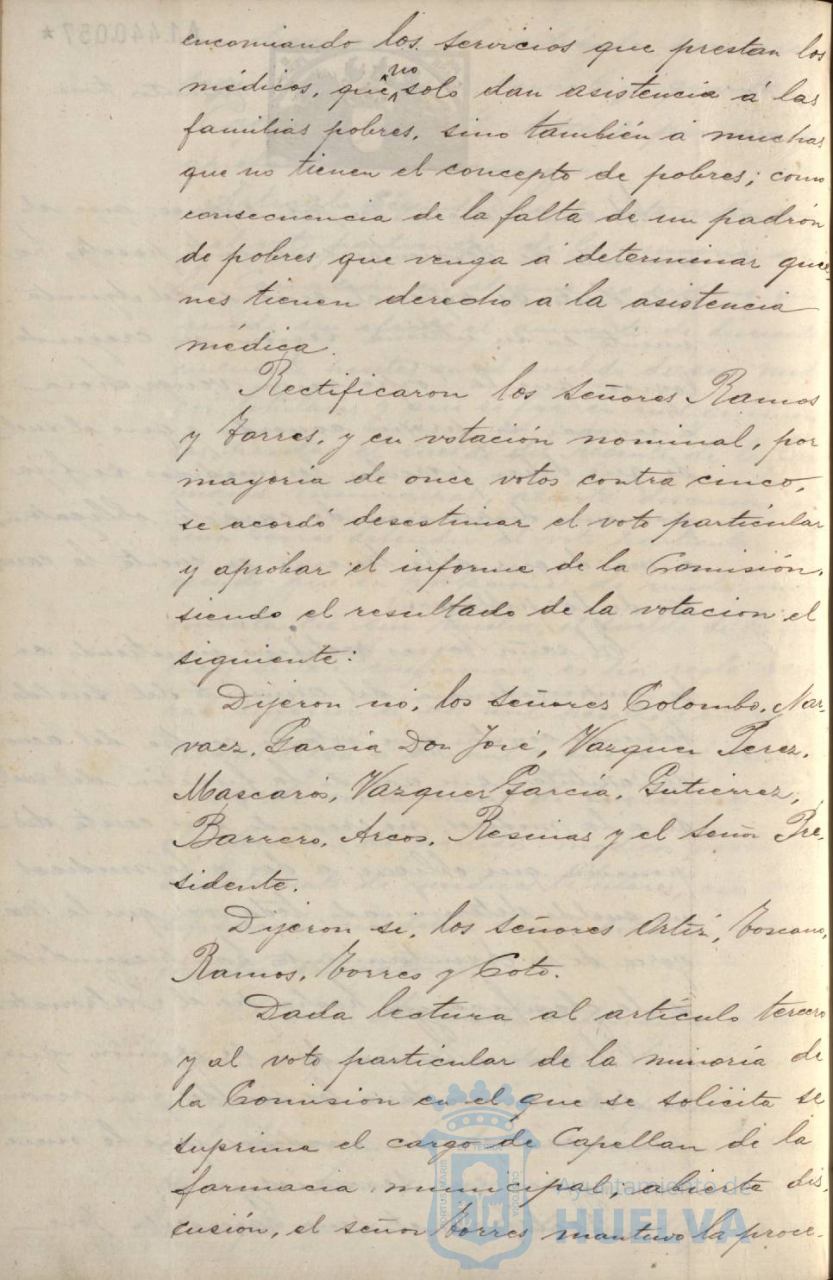 encomiando los servicios que prestan los
médicos, que no solo dan asistencia á las
familias pobres, sino también á muchas
que no tienen el concepto de pobres; como
consecuencia de la falta de un padrón
de pobres que venga á determinar quie-
nes tienen derecho á la asistencia
médica.
Rectificaron los señores Ramos
y Torres, y en votación nominal, por
mayoria de once votos contra cinco,
se acordó desestimar el voto particular
y aprobar el informe de la Comisión,
siendo el resultado de la votacion el
siguiente:
Dijeron no, los señores Colombo, Nar-
vaez, García Don José, Vazquez Perez,
Mascarós, Vazquez García, Gutierrez,
Barrero, Arcos, Resinas y el señor Pre-
sidente.
Dijeron si, los señores Ortiz, Toscano,
Ramos, Torres y Coto.
Dada lectura al artículo tercero
y al voto particular de la minoría de
la Comisión en el que se solicita se
suprima el cargo de Capellan de la
farmacia municipal; abierta dis-
cusión, el señor Torres mantuvo la proce-
A1.440.057*
Ayuntamiento de
HUELVA